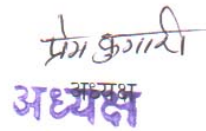 प्रेम कुमारी
अध्यक्ष
अध्यक्ष